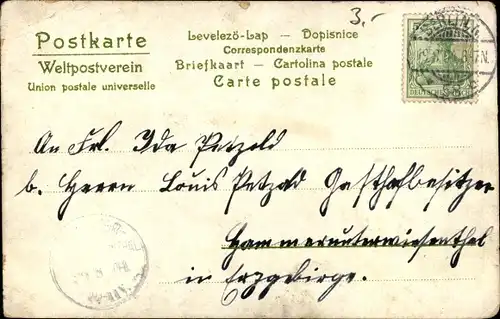 3.-
Postkarte
Weltpostverein
Union postale universelle
Levelezö-Lap — Dopisnice
Correspondenzkarte
Briefkaart — Cartolina postale
Carte postale
BERLIN
An Frl. Ida Petzold
b. Herrn Louis Petzold Gasthofbesitzer
Hammerunterwiesenthal
in Erzgebirge.